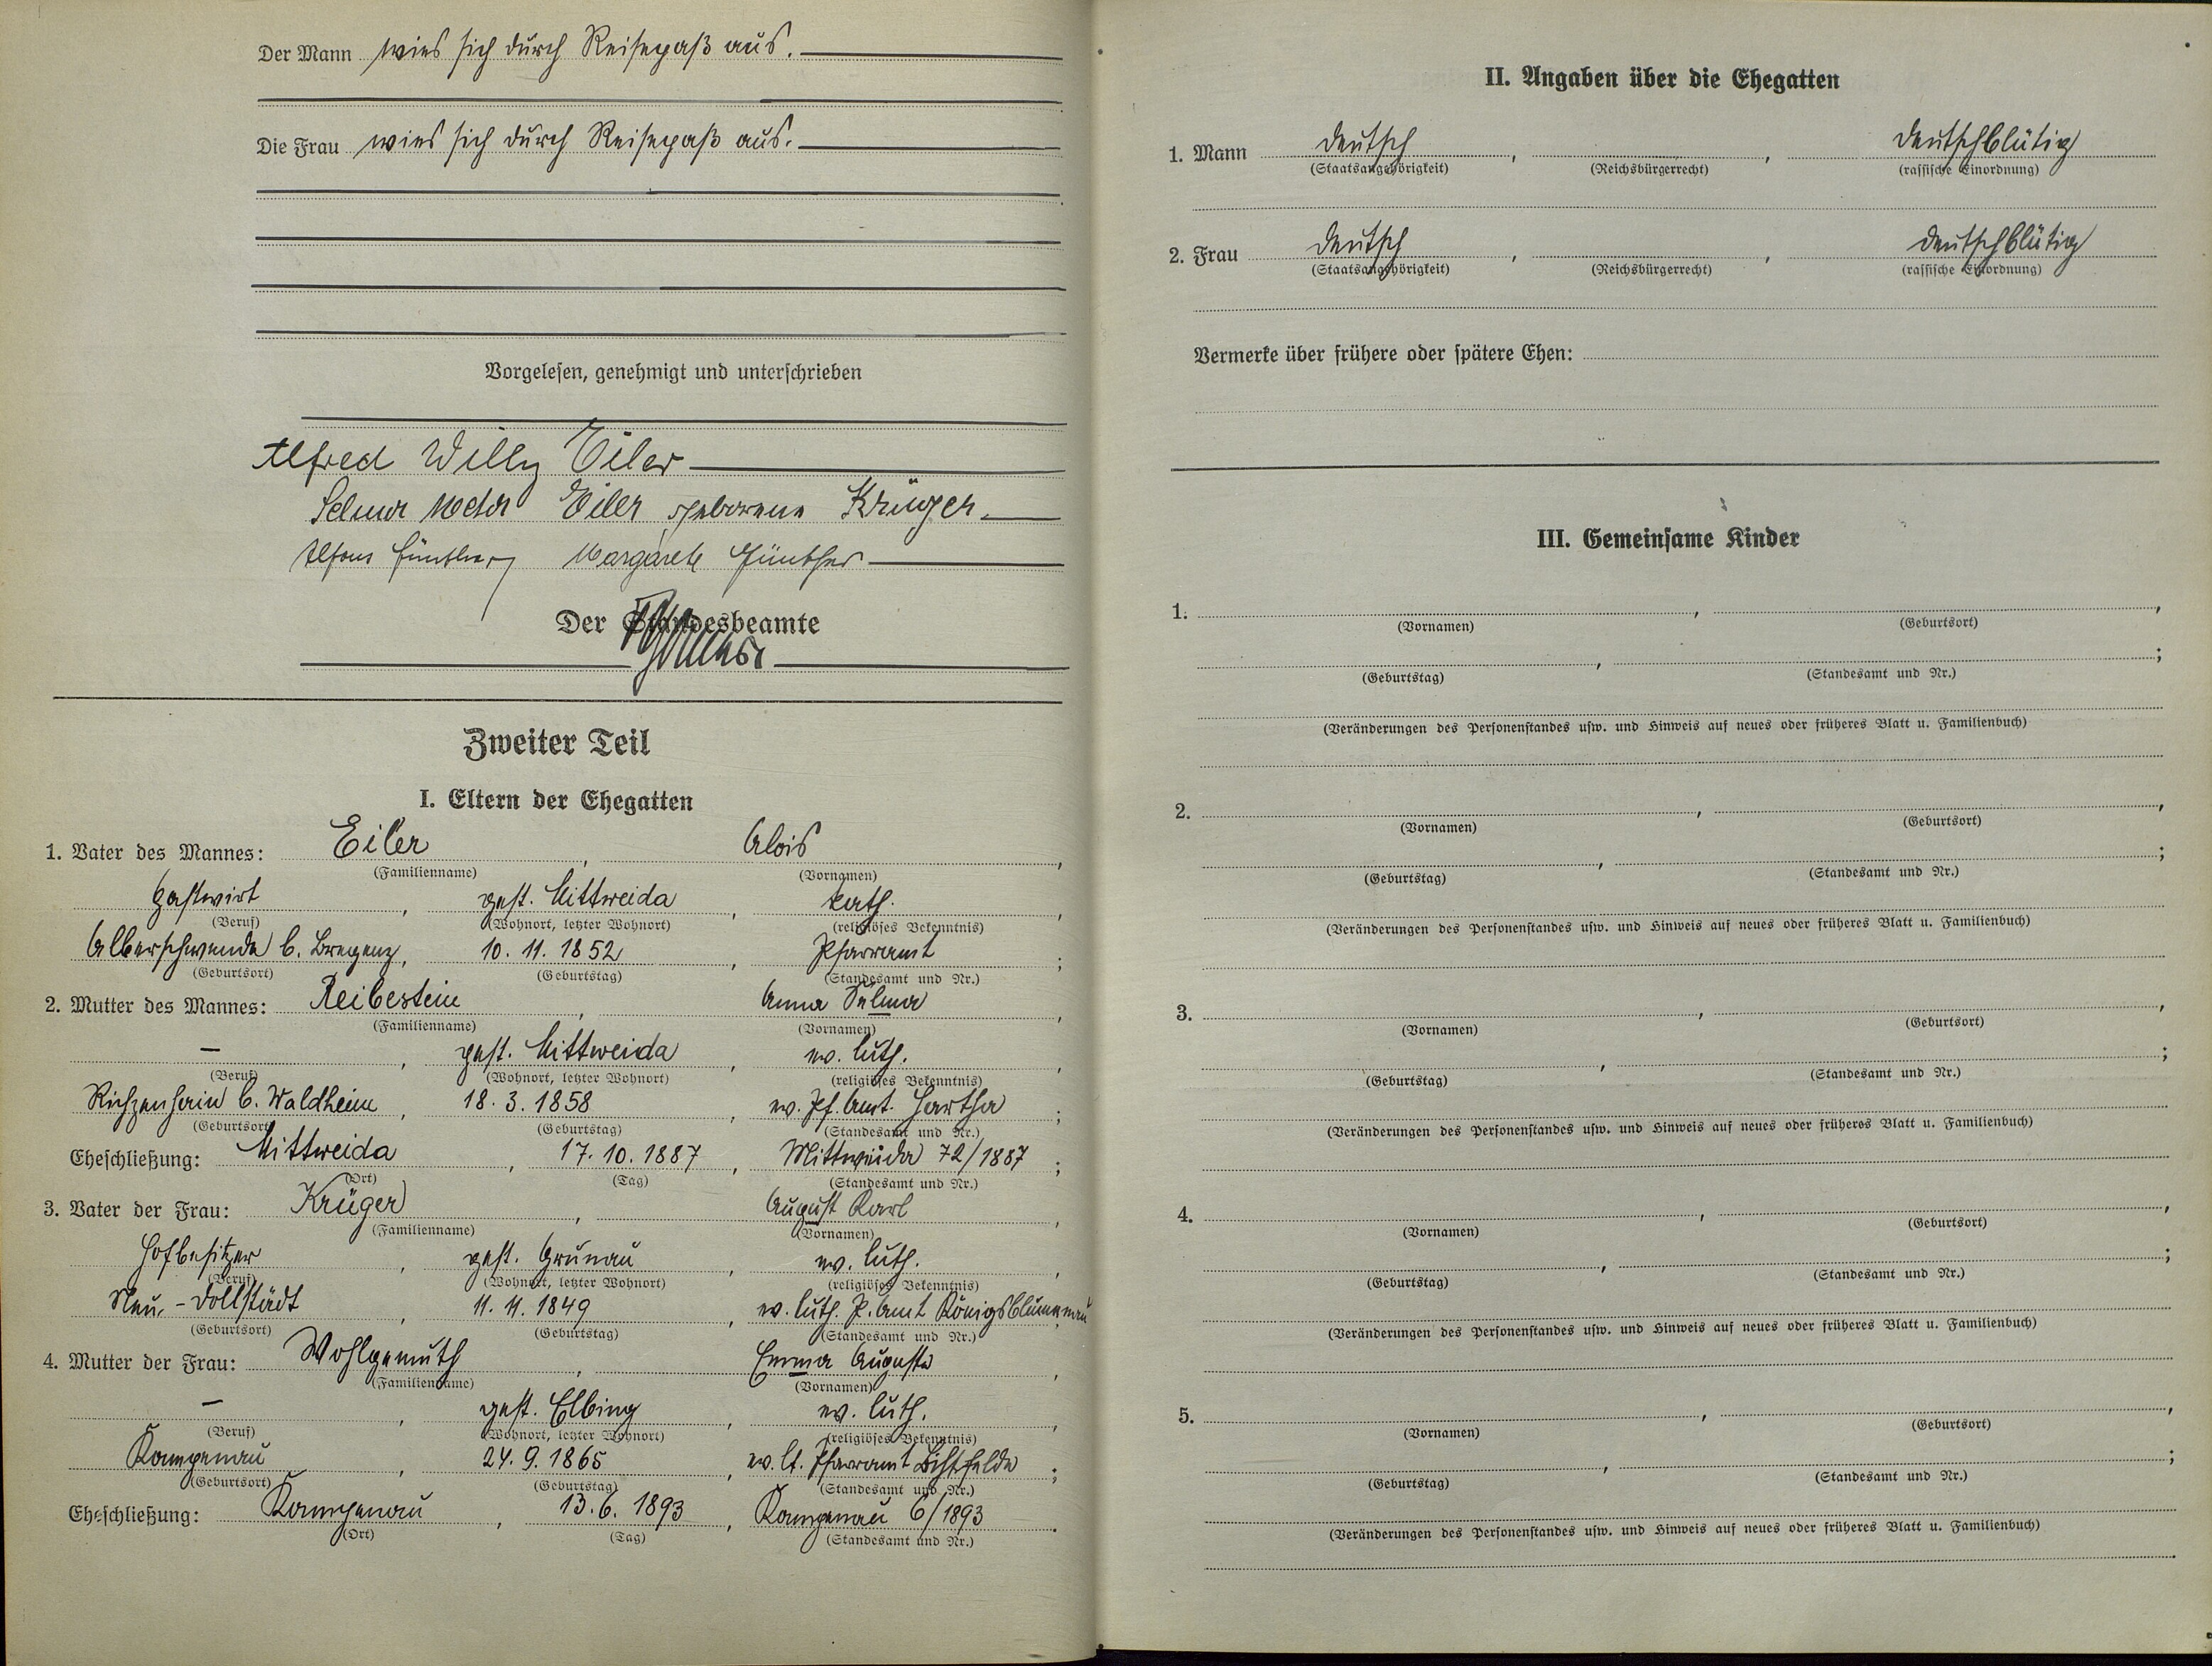 Der Mann wies sich durch Reisepaß aus.
Die Frau wies sich durch Reisepaß aus.
Vorgelesen, genehmigt und unterschrieben
Alfred Willy Eiler
Selma Meta Eiler geborene Krüger.
Alfons Günther Margarete Günther
Der Standesbeamte
Zweiter Teil
I. Eltern der Ehegatten
1. Vater des Mannes: Eiler, Alois,
(Familienname) (Vornamen)
Gastwirt, gest. Mittweida, kath.,
(Beruf) (Wohnort, letzter Wohnort) (religiöses Bekenntnis)
Alberschwende b. Bregenz, 10. 11. 1852, Pfarramt;
(Geburtsort) (Geburtstag) (Standesamt und Nr.)
2. Mutter des Mannes: Reibestein, Anna Selma,
(Familienname) (Vornamen)
–, gest. Mittweida, ev. luth.,
(Beruf) (Wohnort, letzter Wohnort) (religiöses Bekenntnis)
Richzenhain b. Waldheim, 18. 3. 1858, ev. Pf. Amt. Hartha;
(Geburtsort) (Geburtstag) (Standesamt und Nr.)
Eheschließung: Mittweida, 17. 10. 1887, Mittweida 72/1887;
(Ort) (Tag) (Standesamt und Nr.)
3. Vater der Frau: Krüger, August Karl,
(Familienname) (Vornamen)
Hofbesitzer, gest. Grunau, ev. luth.,
(Beruf) (Wohnort, letzter Wohnort) (religiöses Bekenntnis)
Neu-Dollstädt, 11. 11. 1849, ev. luth. P. Amt Königsblumenau
(Geburtsort) (Geburtstag) (Standesamt und Nr.)
4. Mutter der Frau: Wohlgemuth, Emma Auguste,
(Familienname) (Vornamen)
–, gest. Elbing, ev. luth.,
(Beruf) (Wohnort, letzter Wohnort) (religiöses Bekenntnis)
Kampenau, 24. 9. 1865, ev. lt. Pfarramt Lichtfelde;
(Geburtsort) (Geburtstag) (Standesamt und Nr.)
Eheschließung: Kampenau, 13. 6. 1893, Kampenau 6/1893.
(Ort) (Tag) (Standesamt und Nr.)
II. Angaben über die Ehegatten
1. Mann deutsch, , deutschblütig
(Staatsangehörigkeit) (Reichsbürgerrecht) (rassische Einordnung)
2. Frau deutsch, , deutschblütig
(Staatsangehörigkeit) (Reichsbürgerrecht) (rassische Einordnung)
Vermerke über frühere oder spätere Ehen:
III. Gemeinsame Kinder
1. , ,
(Vornamen) (Geburtsort)
, ;
(Geburtstag) (Standesamt und Nr.)
(Veränderungen des Personenstandes usw. und Hinweis auf neues oder früheres Blatt u. Familienbuch)
2. , ,
(Vornamen) (Geburtsort)
, ;
(Geburtstag) (Standesamt und Nr.)
(Veränderungen des Personenstandes usw. und Hinweis auf neues oder früheres Blatt u. Familienbuch)
3. , ,
(Vornamen) (Geburtsort)
, ;
(Geburtstag) (Standesamt und Nr.)
(Veränderungen des Personenstandes usw. und Hinweis auf neues oder früheres Blatt u. Familienbuch)
4. , ,
(Vornamen) (Geburtsort)
, ;
(Geburtstag) (Standesamt und Nr.)
(Veränderungen des Personenstandes usw. und Hinweis auf neues oder früheres Blatt u. Familienbuch)
5. , ,
(Vornamen) (Geburtsort)
, ;
(Geburtstag) (Standesamt und Nr.)
(Veränderungen des Personenstandes usw. und Hinweis auf neues oder früheres Blatt u. Familienbuch)